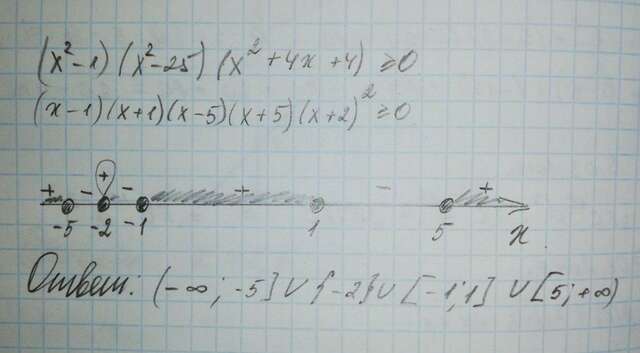 (x²-1)(x²-25)(x²+4x+4)≥0
(x-1)(x+1)(x-5)(x+5)(x+2)²≥0
+ - + - + - +
-5 -2 -1 1 5 x
Ответ: (-∞; -5]∪{-2}∪[-1;1]∪[5;+∞)